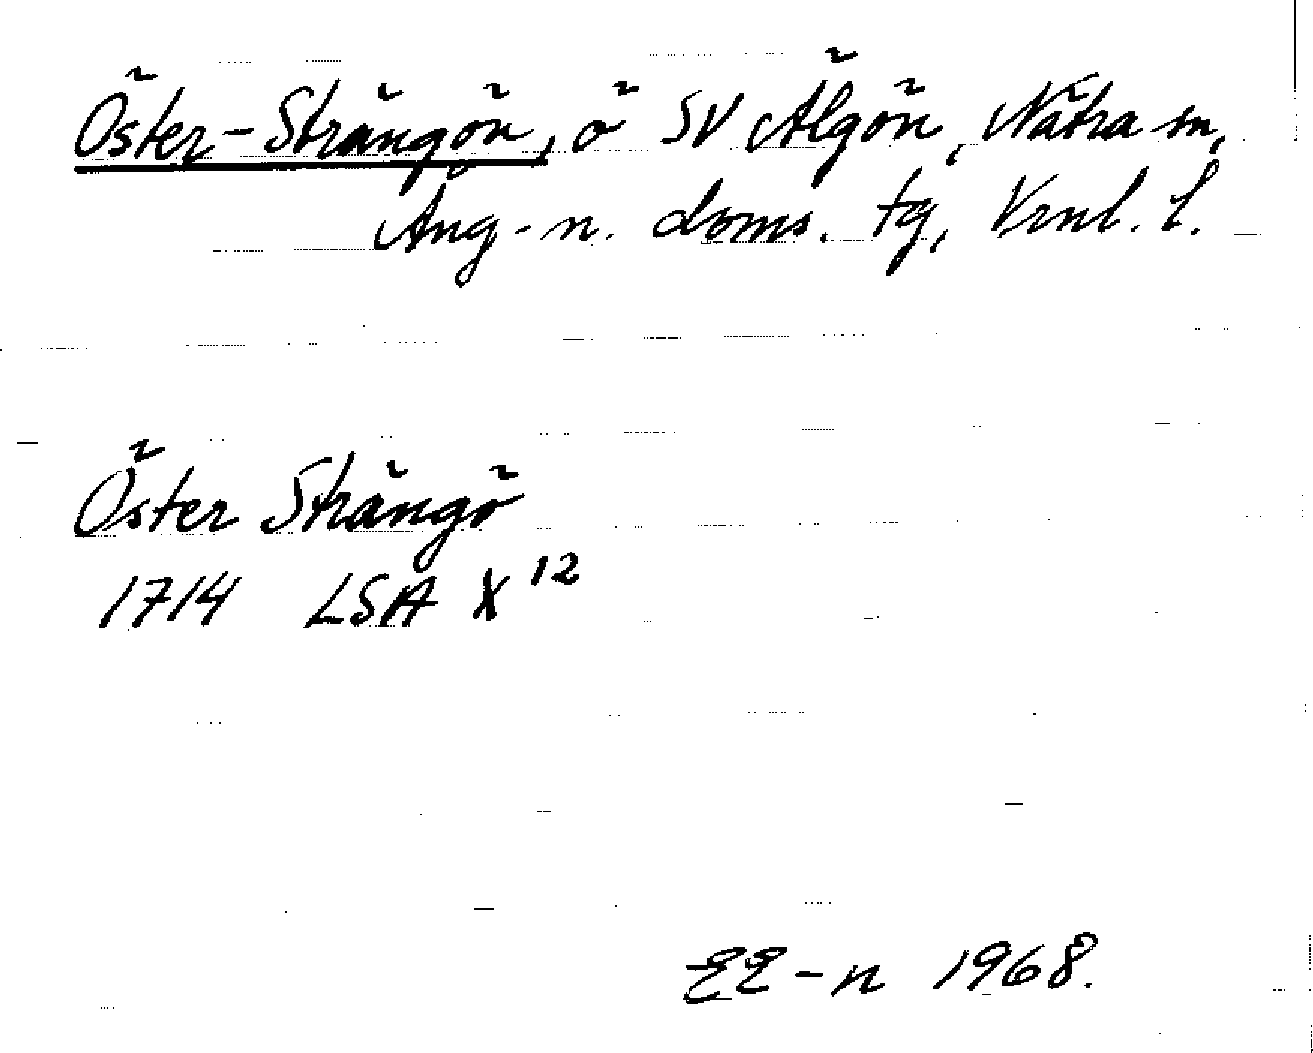 Öster-Strängön, ö SV Älgön, Nätra sn,
Ång-n. doms. tg, Vrnl. l.
Öster Strängö
1714 LSA X¹²
EE-n 1968.